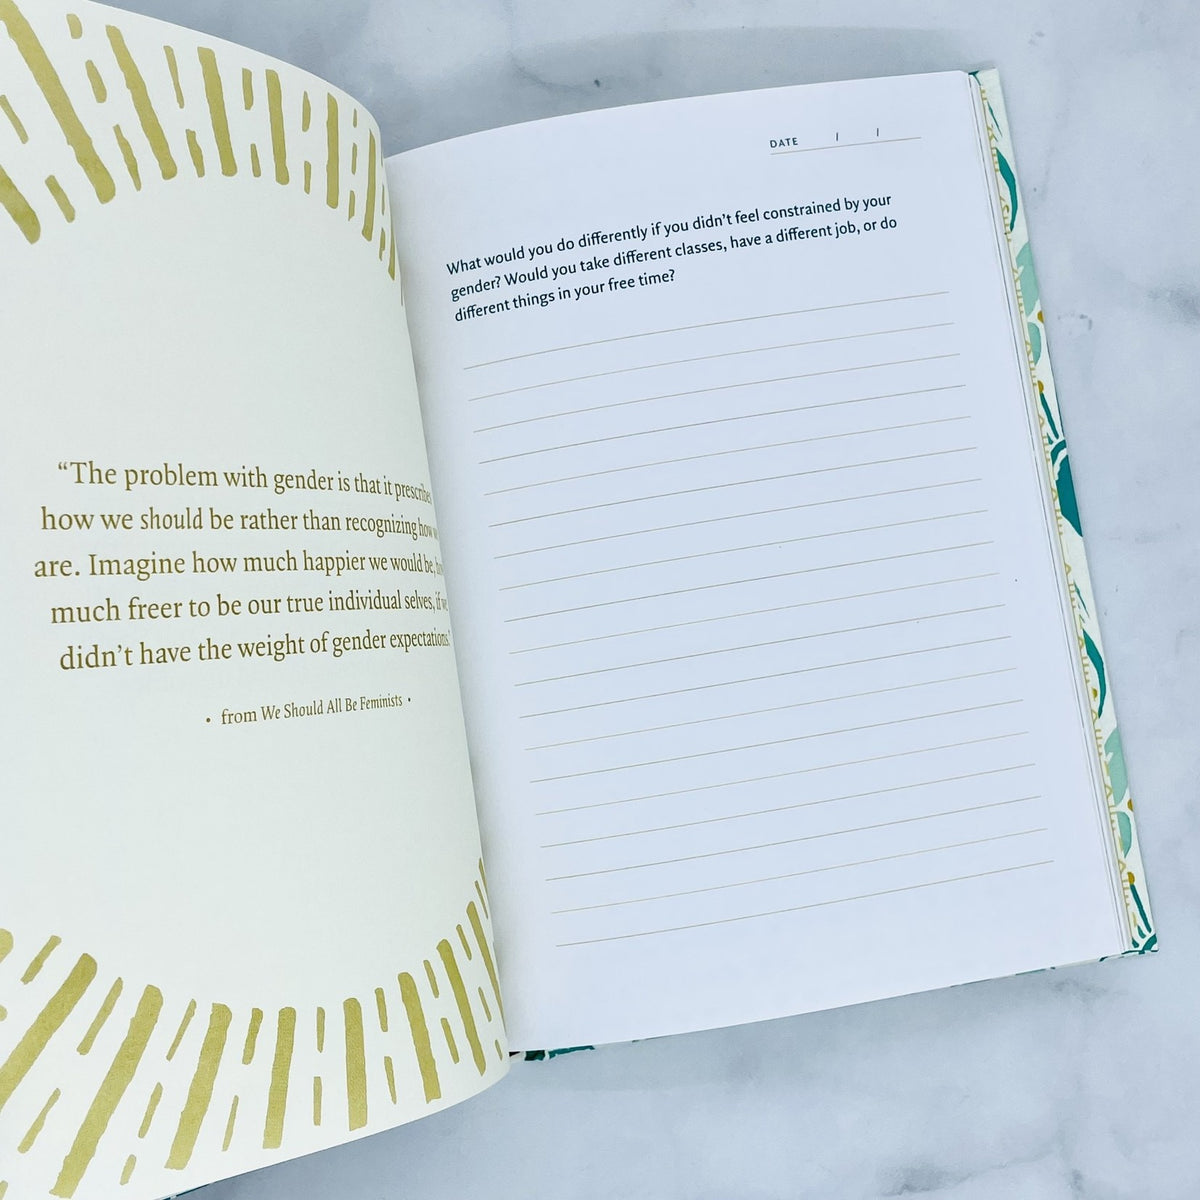 “The problem with gender is that it prescribes
how we should be rather than recognizing how
are. Imagine how much happier we would be,
much freer to be our true individual selves, if we
didn’t have the weight of gender expectations.”
• from We Should All Be Feminists •
DATE / /
What would you do differently if you didn’t feel constrained by your
gender? Would you take different classes, have a different job, or do
different things in your free time?